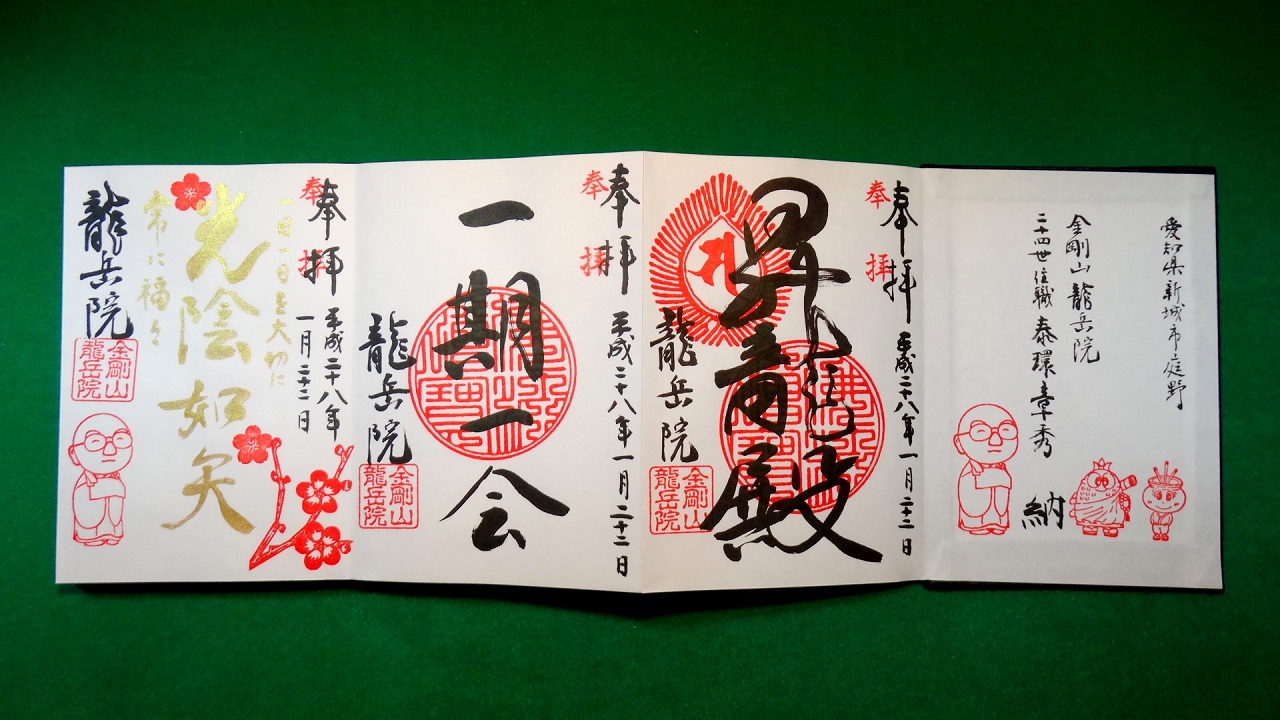 愛知県新城市庭野
金剛山 龍岳院
二十四世住職 泰環章秀
納
奉拝 平成二十八年一月二十二日
奉拝
殿
龍岳院
金剛山
龍岳院
奉拝 平成二十八年一月二十二日
奉拝
一期一会
龍岳院
金剛山
龍岳院
奉拝 平成二十八年
一月二十二日
奉拝
一日一日を大切に
光陰如矢
常に福々
龍岳院
金剛山
龍岳院